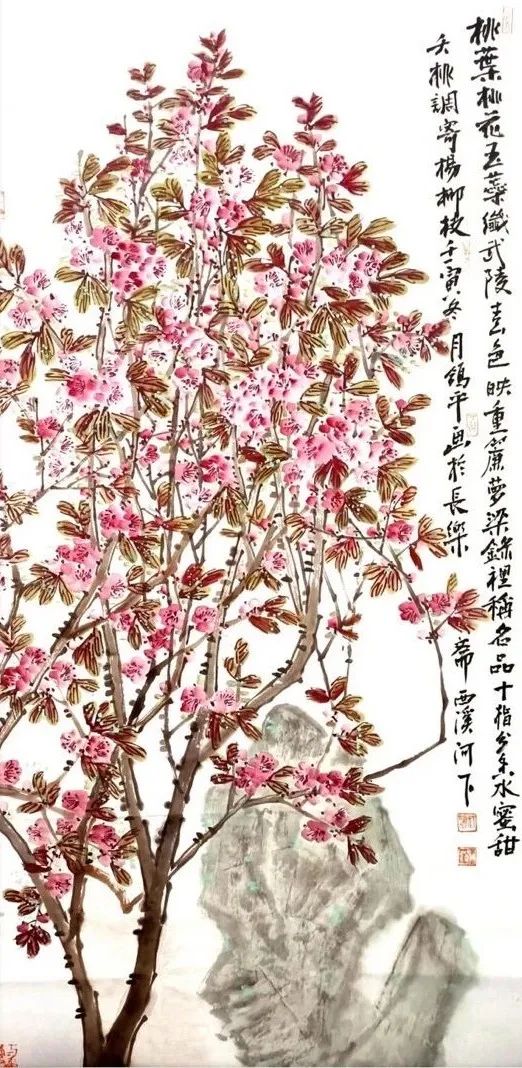 桃葉桃花玉蘂纖武陵春色映重簾夢梁錄裡稱名品十指分來水蜜甜
夭桃調寄楊柳枝壬寅冬月鴿平画於長樂
齋西溪河下